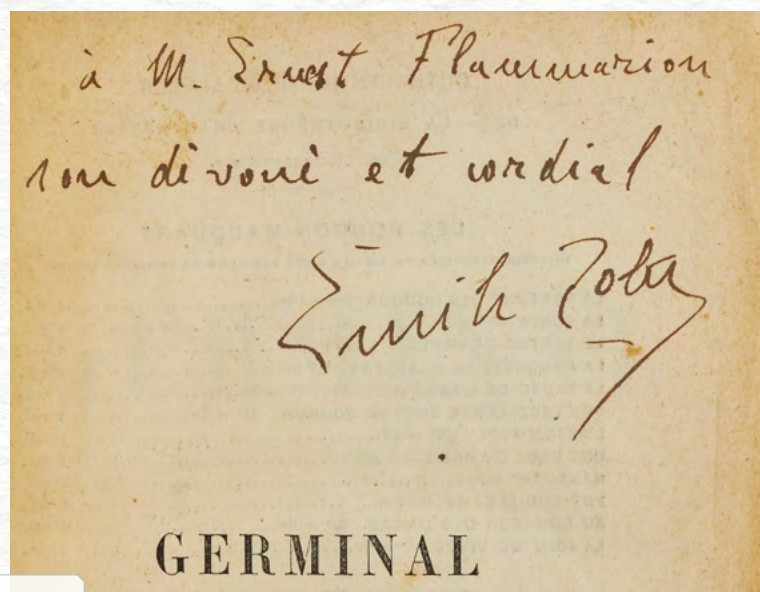 à M. Ernest Flammarion
son dévoué et cordial
Emile Zola
GERMINAL